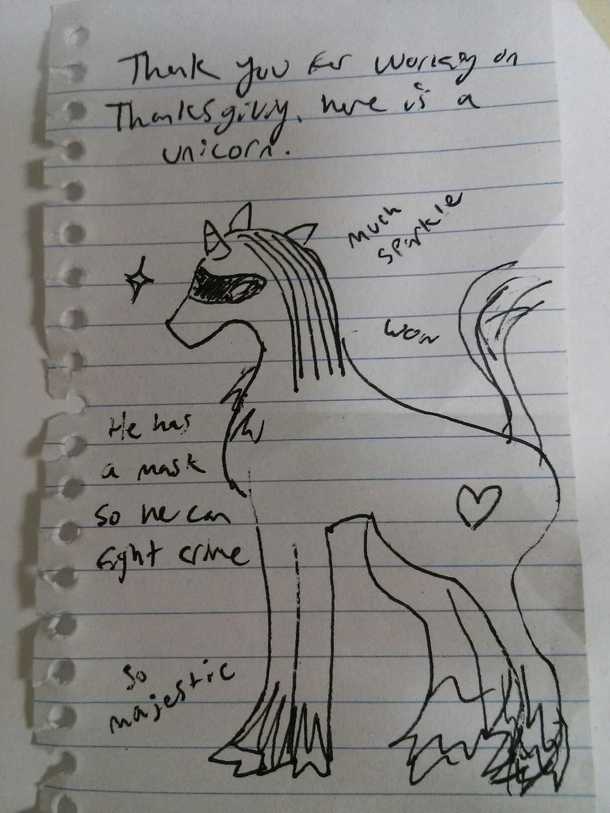 Thank you for working on
Thanksgiving, here is a
unicorn.
much
sparkle
wow
He has
a mask
so he can
fight crime
so
majestic